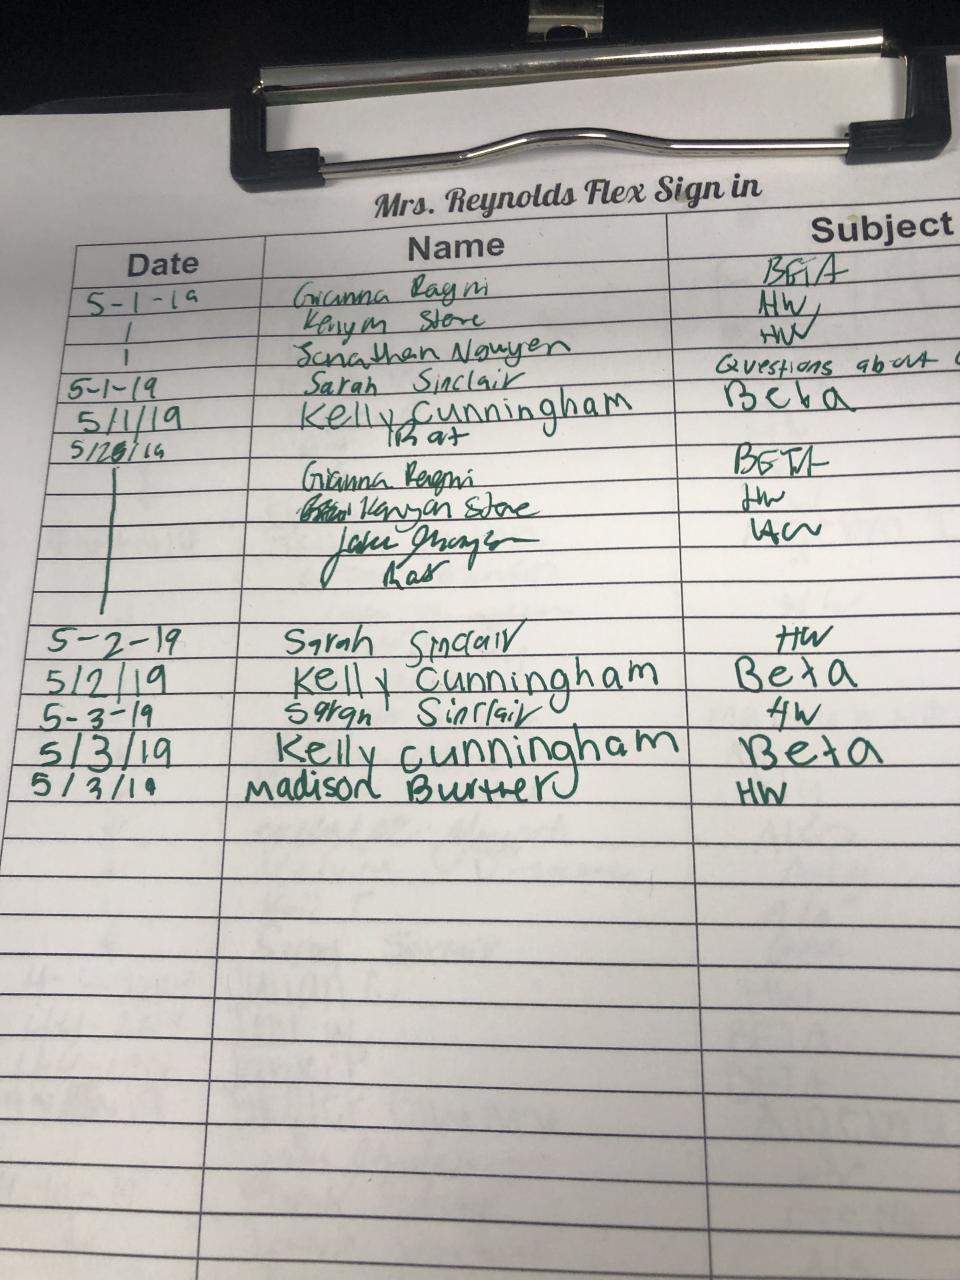 Mrs. Reynolds Flex Sign in
Date Name Subject
5-1-19 Gianna Ragni BETA
Kenyon Stone HW
Jonathan Nguyen HW
5-1-19 Sarah Sinclair Questions about
5/1/19 Kelly Cunningham Beta
Rat
Gianna Ragni BETA
Kenyon Stone HW
HW
5-2-19 Sarah Sinclair HW
5/2/19 Kelly Cunningham Beta
5-3-19 Sarah Sinclair HW
5/3/19 Kelly cunningham Beta
5/3/19 Madison HW